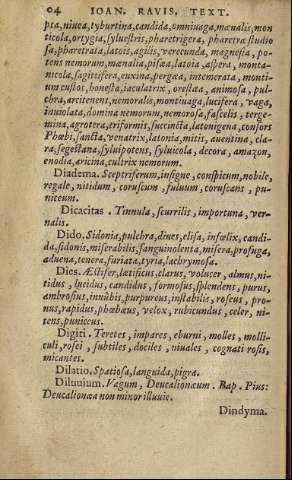 04 IOAN. RAVIS. TEXT.
pta, niuea, tyburtina, candida, omniuaga, mænalis, mon
ticola, ortygia, syluestris, pharetrigera, pharetra studio
sa, pharetrata, latois, agilis, verecunda, magnesia, po-
tens nemorum, mænalia, pisæa, latoia, aspera, monta-
nicola, sagittifera, euxina, pergæa, intemerata, monti-
um custos, honesta, iaculatrix, orestæa, animosa, pul-
chra, arcitenent, nemoralis, montiuaga, lucifera, vaga,
inuiolata, domina nemorum, nemorosa, fascelis, terge-
mina, agrotera, triformis, succincta, latonigena, consors
Phœbi, sancta, venatrix, latonia, mitis, auentina, cla-
ra, segestana, syluipotens, syluicola, decora, amazon,
enodia, aricina, cultrix nemorum.
Diadema. Sceptriferum, insigne, conspicuum, nobile,
regale, nitidum, coruscum, fuluum, coruscans, pu-
niceum.
Dicacitas. Tinnula, scurrilis, importuna, ver-
nalis.
Dido. Sidonia, pulchra, diues, elisa, infœlix, candi-
da, sidonis, miserabilis, sanguinolenta, misera, profuga,
aduena, tenera, furiata, tyria, lachrymosa.
Dies. Æstifer, lætificus, clarus, volucer, almus, ni-
tidus, lucidus, candidus, formosus, splendens, purus,
ambrosius, innubis, purpureus, instabilis, roseus, pro-
nus, rapidus, phœbæus, velox, rubicundus, celer, ni-
tens, puniceus.
Digiti. Teretes, impares, eburni, molles, molli-
culi, rosei, subtiles, dociles, niuales, cognati rosis,
micantes.
Dilatio. Spatiosa, languida, pigra.
Diluuium. Vagum, Deucalionæum. Bap. Pius:
Deucalionæa non minor illuuie.
Dindyma.